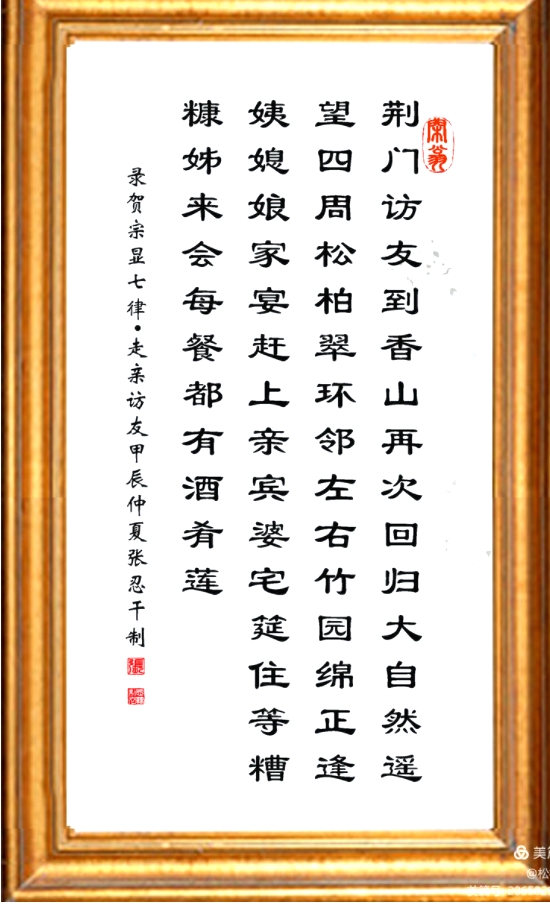 荆门访友到香山再次回归大自然遥
望四周松柏翠环邻左右竹园绵正逢
姨媳娘家宴赶上亲宾婆宅筵住等糟
糠姊来会每餐都有酒肴莲
录贺宗显七律•走亲访友甲辰仲夏张忍干制